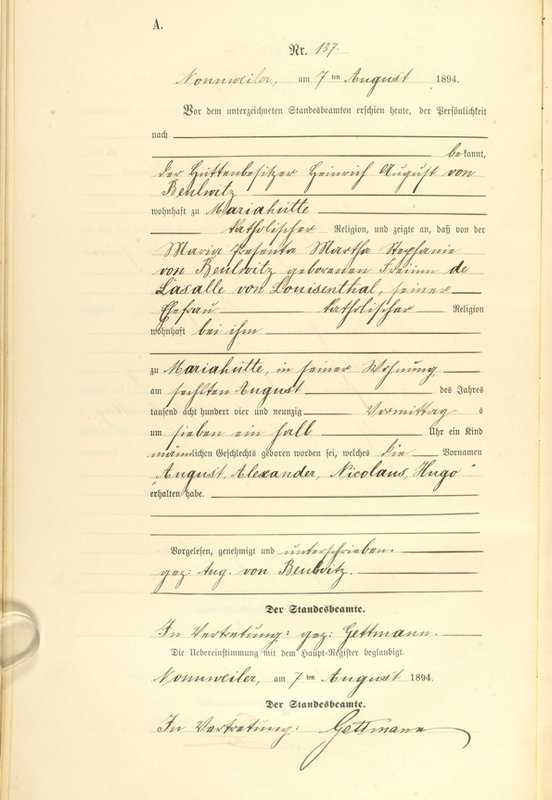 A.
Nr. 137.
Nonnweiler, am 7 ten August 1894.
Vor dem unterzeichneten Standesbeamten erschien heute, der Persönlichkeit
nach
bekannt,
der Hüttenbesitzer Heinrich August von
Beulwitz
wohnhaft zu Mariahütte
katholischer Religion, und zeigte an, daß von der
Maria Martha Stephanie
von Beulwitz geborenen Freiin de
Lasalle von Louisenthal, seiner
Ehefrau katholischer Religion
wohnhaft bei ihm
zu Mariahütte, in seiner Wohnung
am sechsten August des Jahres
tausend acht hundert vier und neunzig Vormittag s
um sieben ein halb Uhr ein Kind
männlichen Geschlechts geboren worden sei, welches die Vornamen
"August, Alexander, Nicolaus, Hugo"
erhalten habe.
Vorgelesen, genehmigt und unterschrieben.
gez: Aug. von Beulwitz.
Der Standesbeamte.
In Vertretung: gez: Gettmann.
Die Uebereinstimmung mit dem Haupt-Register beglaubigt.
Nonnweiler, am 7 ten August 1894.
Der Standesbeamte.
In Vertretung: Gettmann